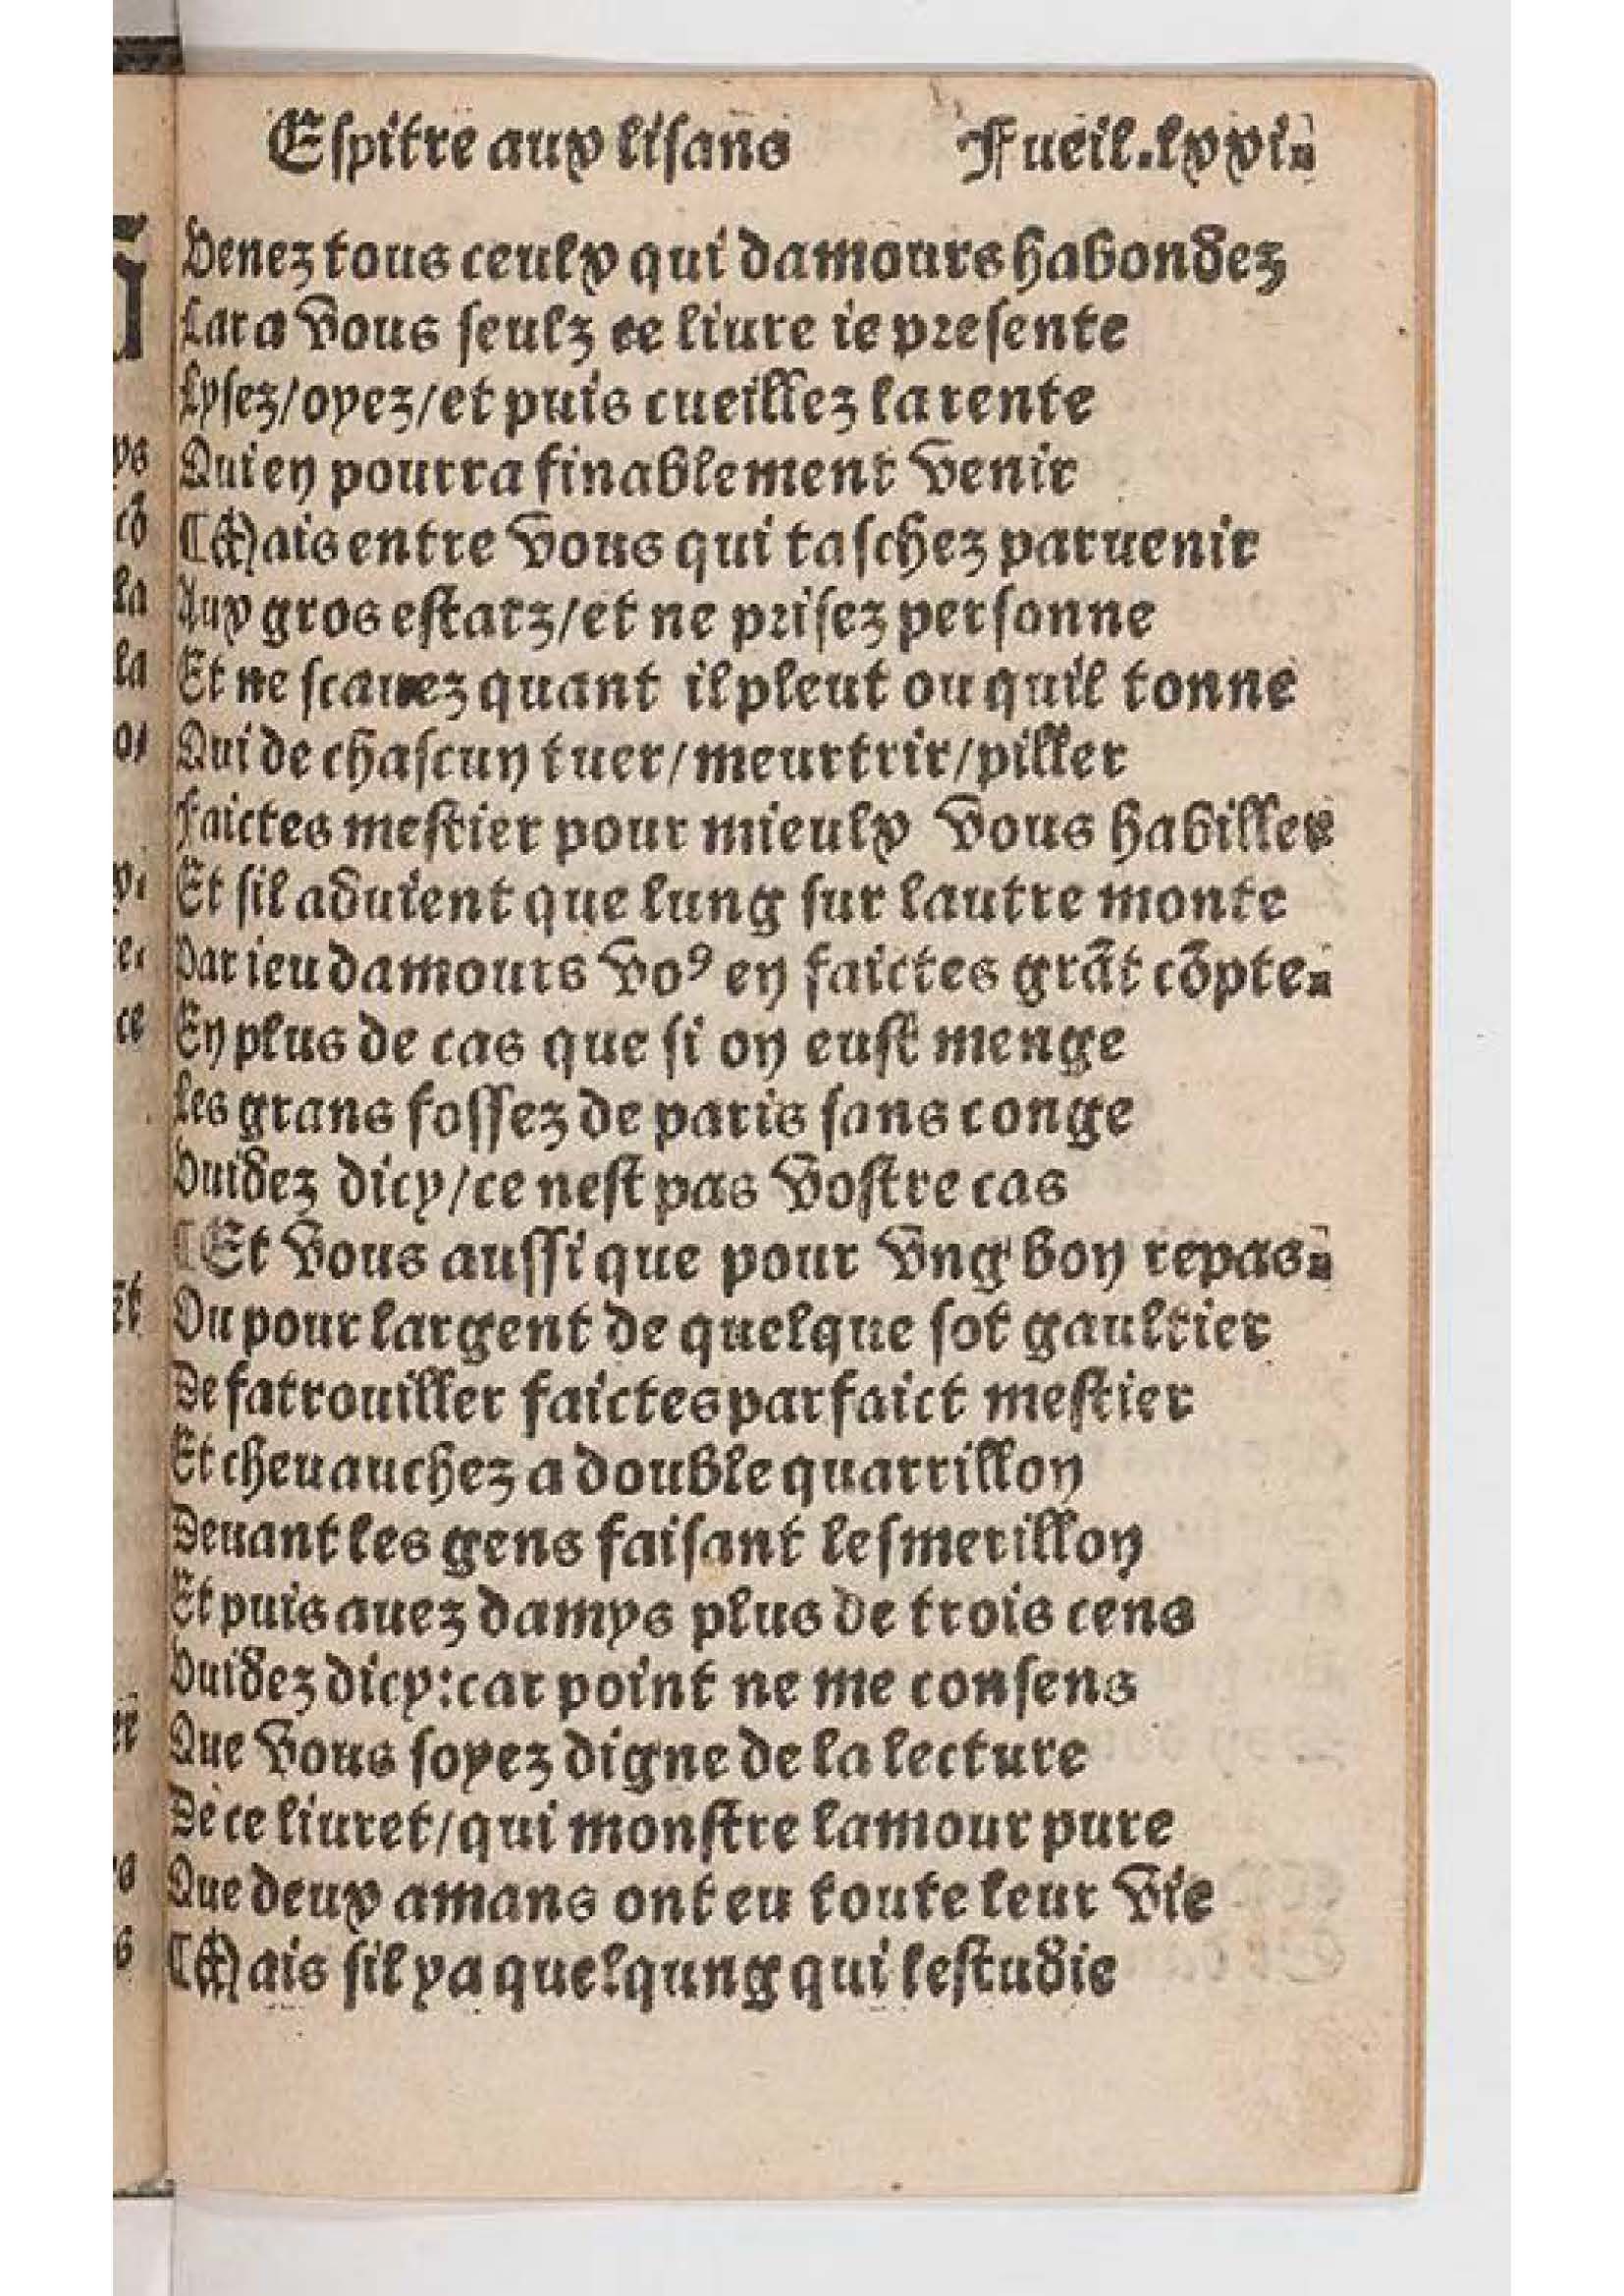 Espitre aux lisans Fueil.lxxi.
Venez tous ceulx qui damours habondez
Car a vous seulz ce liure ie presente
Lysez/oyez/et puis cueillez la rente
Qui en pourra finablement venir
¶Mais entre vous qui taschez paruenir
Aux gros estatz/et ne prisez personne
Et ne scauez quant il pleut ou quil tonne
Qui de chascun tuer/meurtrir/piller
Faictes mestier pour mieulx vous habiller
Et sil aduient que lung sur lautre monte
Par ieu damours voꝰ en faictes grãt cõpte.
En plus de cas que si on eust menge
Les grans fossez de paris sans conge
Vuidez dicy/ce nest pas vostre cas
¶Et vous aussi que pour vng bon repas.
Ou pour largent de quelque sot gaultier
De fatrouiller faictes parfaict mestier
Et cheuauchez a double quarrillon
Deuant les gens faisant lesmerillon
Et puis auez damys plus de trois cens
Vuidez dicy:car point ne me consens
Que vous soyez digne de la lecture
De ce liuret/qui monstre lamour pure
Que deux amans ont eu toute leur vie
¶Mais sil ya quelqung qui lestudie